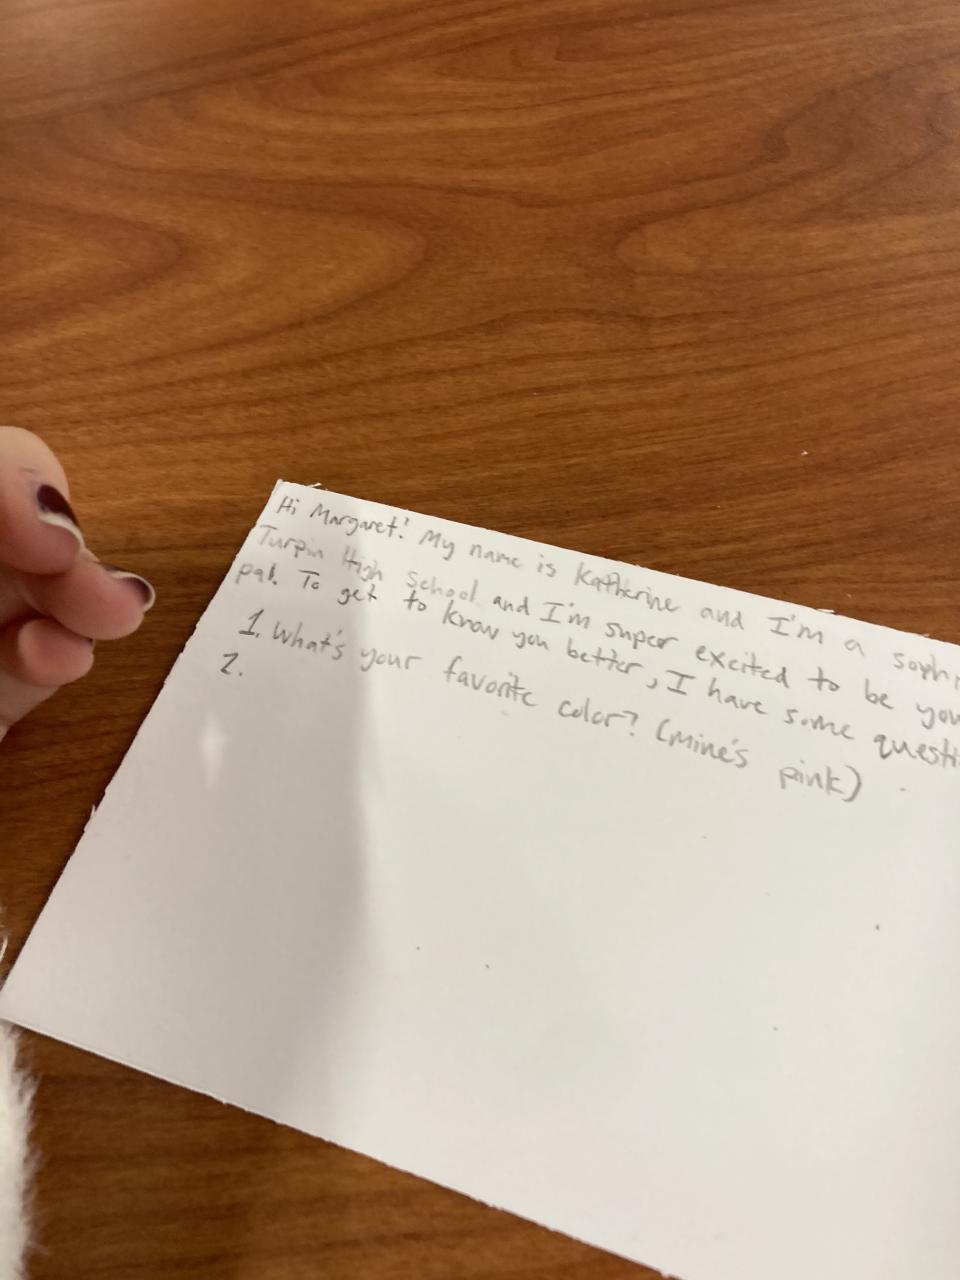 Hi Margaret! My name is Katherine and I'm a soph
Turpin High School and I'm super excited to be you
pal. To get to know you better, I have some questi
1. What's your favorite color? (Mine's pink)
2.